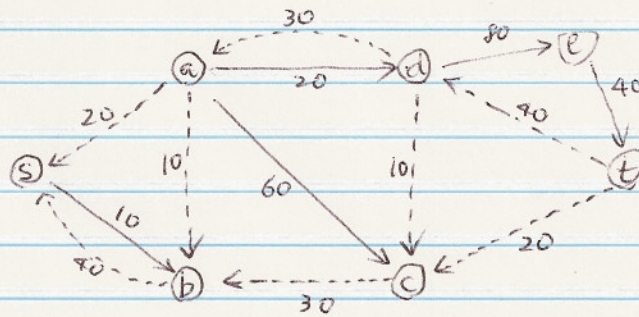 30
80
e
a
20
d
40
20
10
60
10
40
t
s
10
40
20
b
30
c